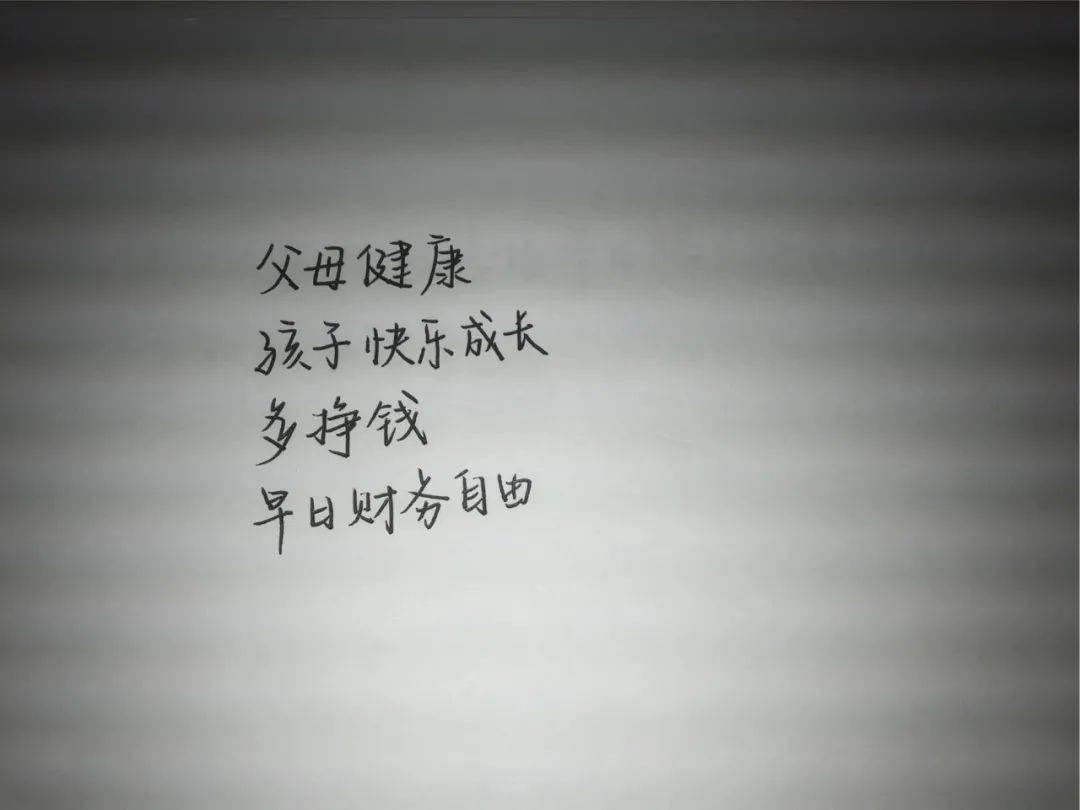 父母健康
孩子快乐成长
多挣钱
早日财务自由